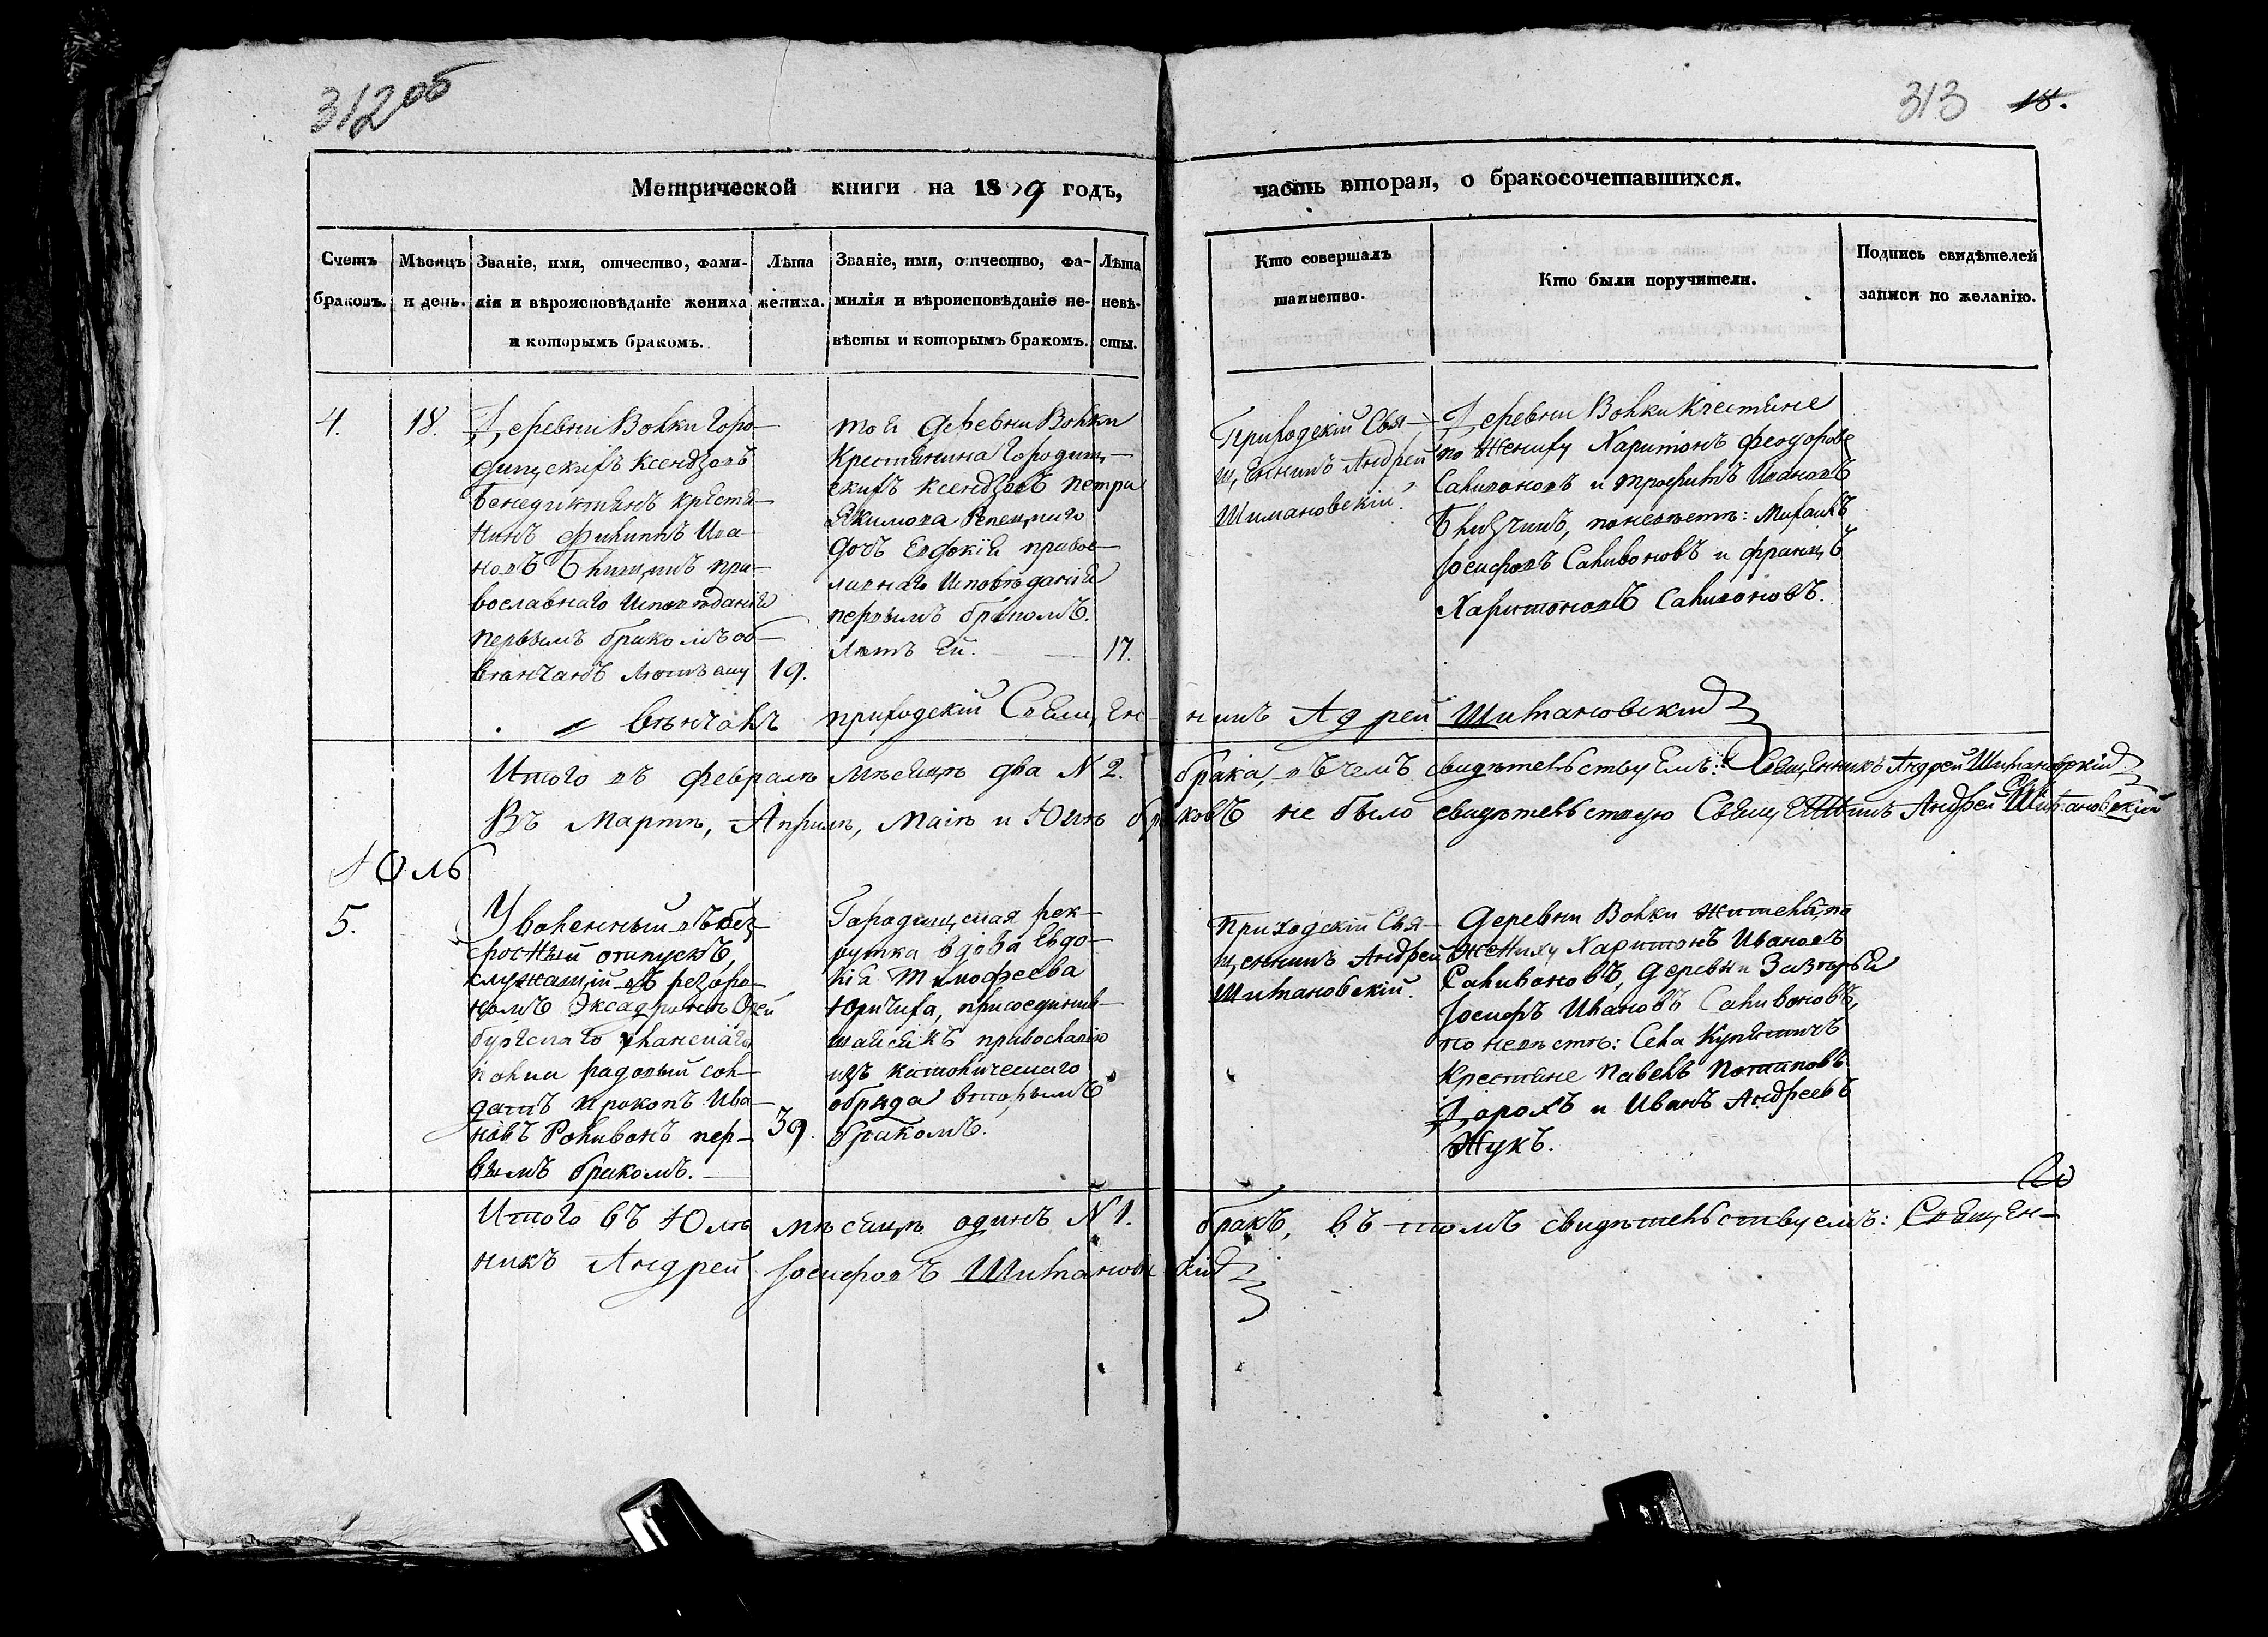 312 об
313 18.
Метрической книги на 1839 годъ,
часть вторая, о бракосочетавшихся.
Счетъ браковъ.
Мѣсяцъ и день.
Званіе, имя, отчество, фами-
лія и вѣроисповѣданіе жениха
и которымъ бракомъ.
Лѣта жениха.
Званіе, имя, отчество, фа-
милія и вѣроисповѣданіе не-
вѣсты и которымъ бракомъ.
Лѣта невѣ-
сты.
Кто совершалъ
таинство.
Кто были поручители.
Подпись свидѣтелей
записи по желанію.
4.
18.
Деревни Волки Горо-
дищскихъ Ксендзовъ
Бенедиктянъ крестя-
нинъ Филипъ Ива-
новъ
пра-
вославнаго Исповѣданія
первымъ бракомъ об-
вѣнчанъ Лѣтъ ему
19.
той деревни Волки
Крестянина Городищ-
скихъ Ксендзовъ Петра
Якимова
дочь Евдокія правос-
лавнаго Исповѣданія
первымъ бракомъ.
Лѣтъ ей.
17.
Приходскій Свя-
щенникъ Андрей
Шимановскій.
Деревни Волки Крестяне
по жениху Харитонъ Феодоровъ
Саливоновъ и Трофимъ Ивановъ
по невѣстѣ: Михаилъ
Іосифовъ Саливоновъ и Францъ
Харитоновъ Саливоновъ.
Вѣнчалъ приходскій Священ-
никъ Адрей Шимановскій
Итого въ февралѣ мѣсяцѣ два N 2. брака, въ чемъ свидѣтельствуемъ: Священникъ Андрей Шимановскій
Въ Мартѣ, Априлѣ, Маіѣ и Юнѣ браковъ не было свидѣтельствую Священникъ Андрей Шимановскій
Юль
5.
Уволенный въ без-
срочный отпускъ,
служащій въ резерв-
номъ Эскадронѣ
бургскаго уланскаго
полка рядовый сол-
датъ Прокопъ Ива-
новъ Роливонъ пер-
вымъ бракомъ.
39.
Городищская рек-
рутка вдова Евдо-
кія Тимофеева
Юричиха, присоединив-
шаяся къ православію
изъ католическаго
обряда вторымъ
бракомъ.
Приходскій Свя-
щенникъ Андрей
Шимановскій.
Деревни Волки жители, по
жениху Харитонъ Ивановъ
Саливоновъ, деревни Завтрья
Іосифъ Ивановъ Саливоновъ,
по невѣстѣ: Села Купятичъ
Крестяне Павелъ Потаповъ
Дорохъ и Иванъ Андреевъ
Жукъ.
Итого въ Юлѣ мѣсяцѣ одинъ N 1. бракъ, въ томъ свидѣтельствуемъ: Священ-
никъ Андрей Іосифовъ Шимановскій